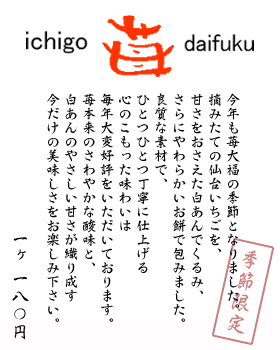 ichigo 苺 daifuku
今年も苺大福の季節となりました。
摘みたての仙台いちごを、
甘さをおさえた白あんでくるみ、
さらにやわらかいお餅で包みました。
良質な素材で、
ひとつひとつ丁寧に仕上げる
心のこもった味わいは
毎年大変好評をいただいております。
苺本来のさわやかな酸味と、
白あんのやさしい甘さが織り成す
今だけの美味しさをお楽しみ下さい。
一ヶ 一八〇円
季節限定